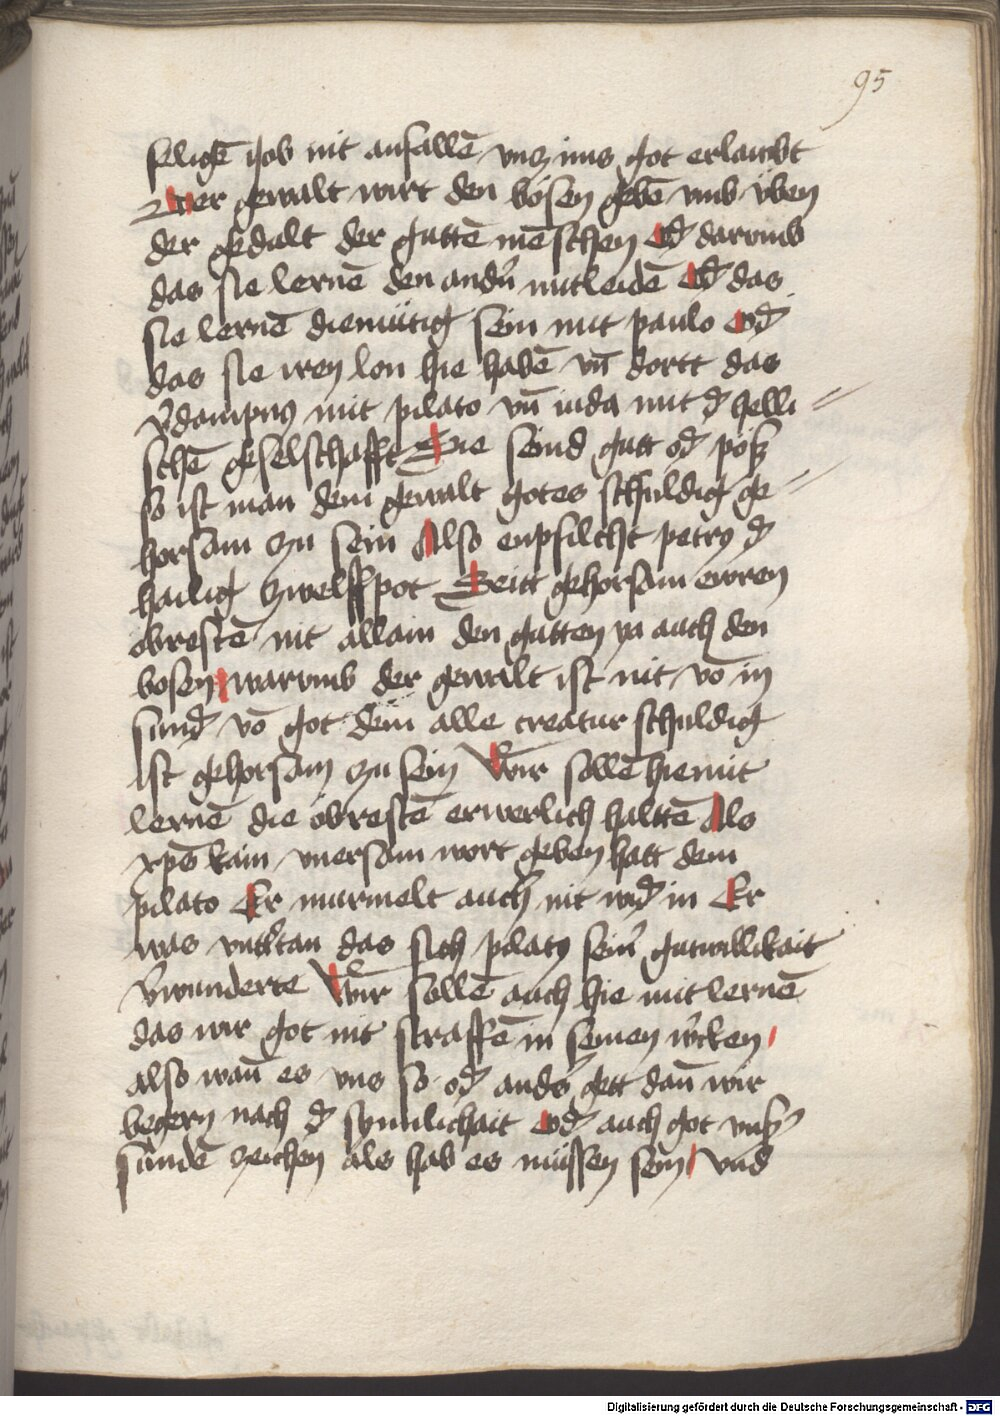 95
seligē iob nit anfallē vnz ims got erlaubt
Der gewalt wirt den bösen gebē vmb vͤben
der gedult der guttē mēschen Od̄ darvmb
das sie lernē den andn̄ mitleidē Od̄ das
sie lernē diemütig sein mit paulo Od̄
das sie iren lon hie habē vn̄ dortt das
v̄dampnꝰ mit pilato vn̄ iuda mit d̄ helli⸗
schē geselschafft Sie seind gutt od̄ pöß
so ist man dem gewalt gotes schuldig ge⸗
horsam zu sein Also enpfilcht petrꝰ d̄
hailig zwelffpot Seitt gehorsam ewren
öbrestē nit allain den gutten ya auch den
bosen warvmb der gewalt ist nit vō in
sund̄ vō got dem alle creatur schuldig
ist gehorsam zu sein Wir sollē hiemit
lernē die öbrestē erwerlich haltē Als
xp̄s kain vnersam wort geben hatt dem
pilato Er murmelt auch nit wid̄ in Er
was vnttertan das sich pilatꝰ sein̄ gutwillikait
v̄wunderte Wir sollē auch hie mit lernē
das wir got nit straffē in seinen w̄cken
also wan̄ es vns so od̄ anders gett dan̄ wir
begern nach d̄ synnlichait Od̄ auch got vnsꝰ
sündē zeichen als hab es müssen sein vnd
Digitalisierung gefördert durch die Deutsche Forschungsgemeinschaft - DFG